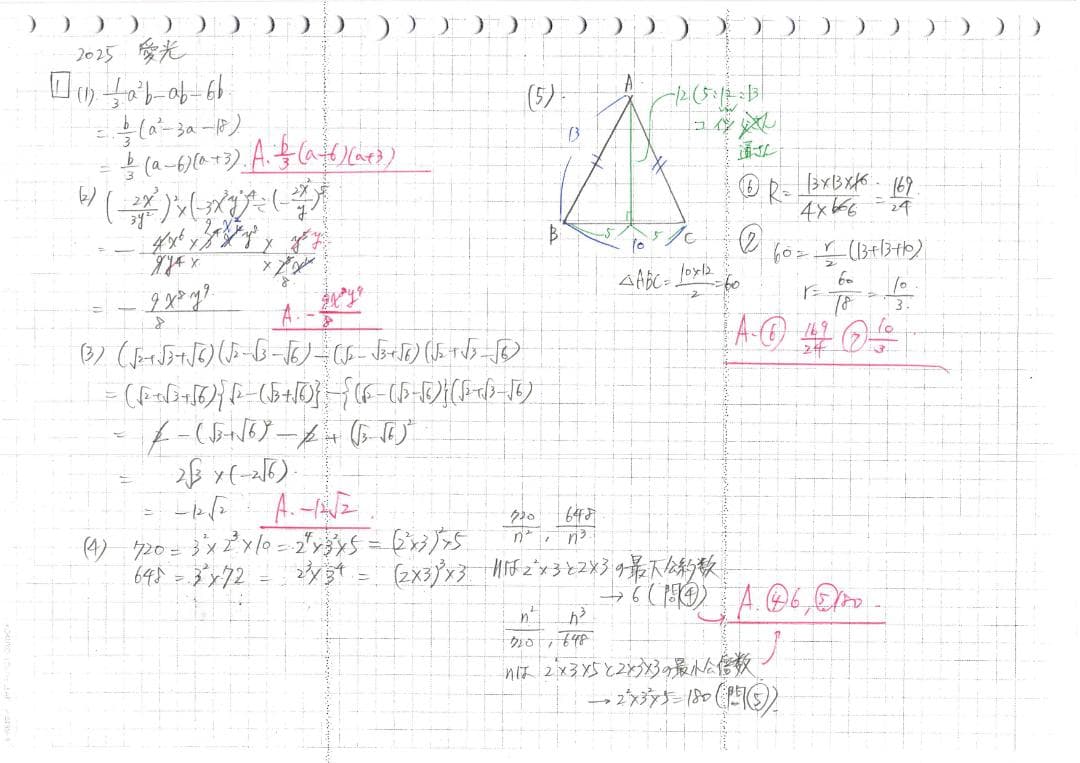 2025 愛光
1 (1) 1/3 a²b - ab - 6b
= b/3 (a² - 3a - 18)
= b/3 (a-6)(a+3). A. b/3 (a-6)(a+3)
(2) (2x³/3y²)² × (-3x³y²)⁴ ÷ (-2x²/y)⁵
= -
= - 9x⁸y⁹/8 A. - 9x⁸y⁹/8
(3) (√2+√3+√6)(√2-√3-√6) - (√2-√3+√6)(√2+√3-√6)
= (√2+√3+√6){√2-(√3+√6)} - {(√2-(√3-√6)}(√2+√3-√6)
= 2 - (√3+√6)² - 2 + (√3-√6)²
= 2√3 × (-2√6).
= -12√2 A. -12√2
(4) 720 = 3² × 2³ × 10 = 2⁴ × 3² × 5 = (2² × 3)² × 5
648 = 3² × 72 = 2³ × 3⁴ = (2×3)³ × 3
720/n² , 648/n³
nは 2²×3と2×3の最大公約数
→ 6 (問④)
n²/720 , n³/648
nは 2²×3×5と2×3×3の最小公倍数
→ 2²×3²×5 = 180 (問⑤)
A. ④6, ⑤180
(5)
A
13
12 (5:12:13
B 5 10 5 C
△ABC = 10×12/2 = 60
⑥ R = 13×13×10/4×60 = 169/24
⑦ 60 = r/2 (13+13+10)
r = 60/18 = 10/3
A. ⑥ 169/24 ⑦ 10/3